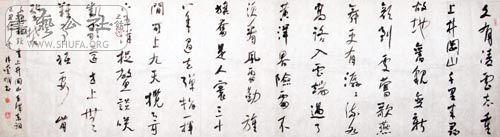 久有凌雲志重
上井岡山千里来尋
故地舊貌變新
顔到處鶯歌燕
舞更有潺潺流水
高路入雲端過了
黄洋界險處不
須看風雷動旌
旗奮是人寰三十
八年過去彈指一揮
間可上九天攬月可
下五洋捉鱉談笑
凱歌還世上無
難事只要肯
登攀
重上井岡山
WWW.SHUFA.ORG